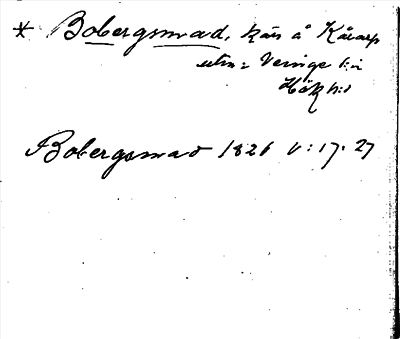 * Bobergsmad, kärr å Kåarp
utm: Veinge s:n
Hök h:d
Bobergsmad 1826 V:17.27